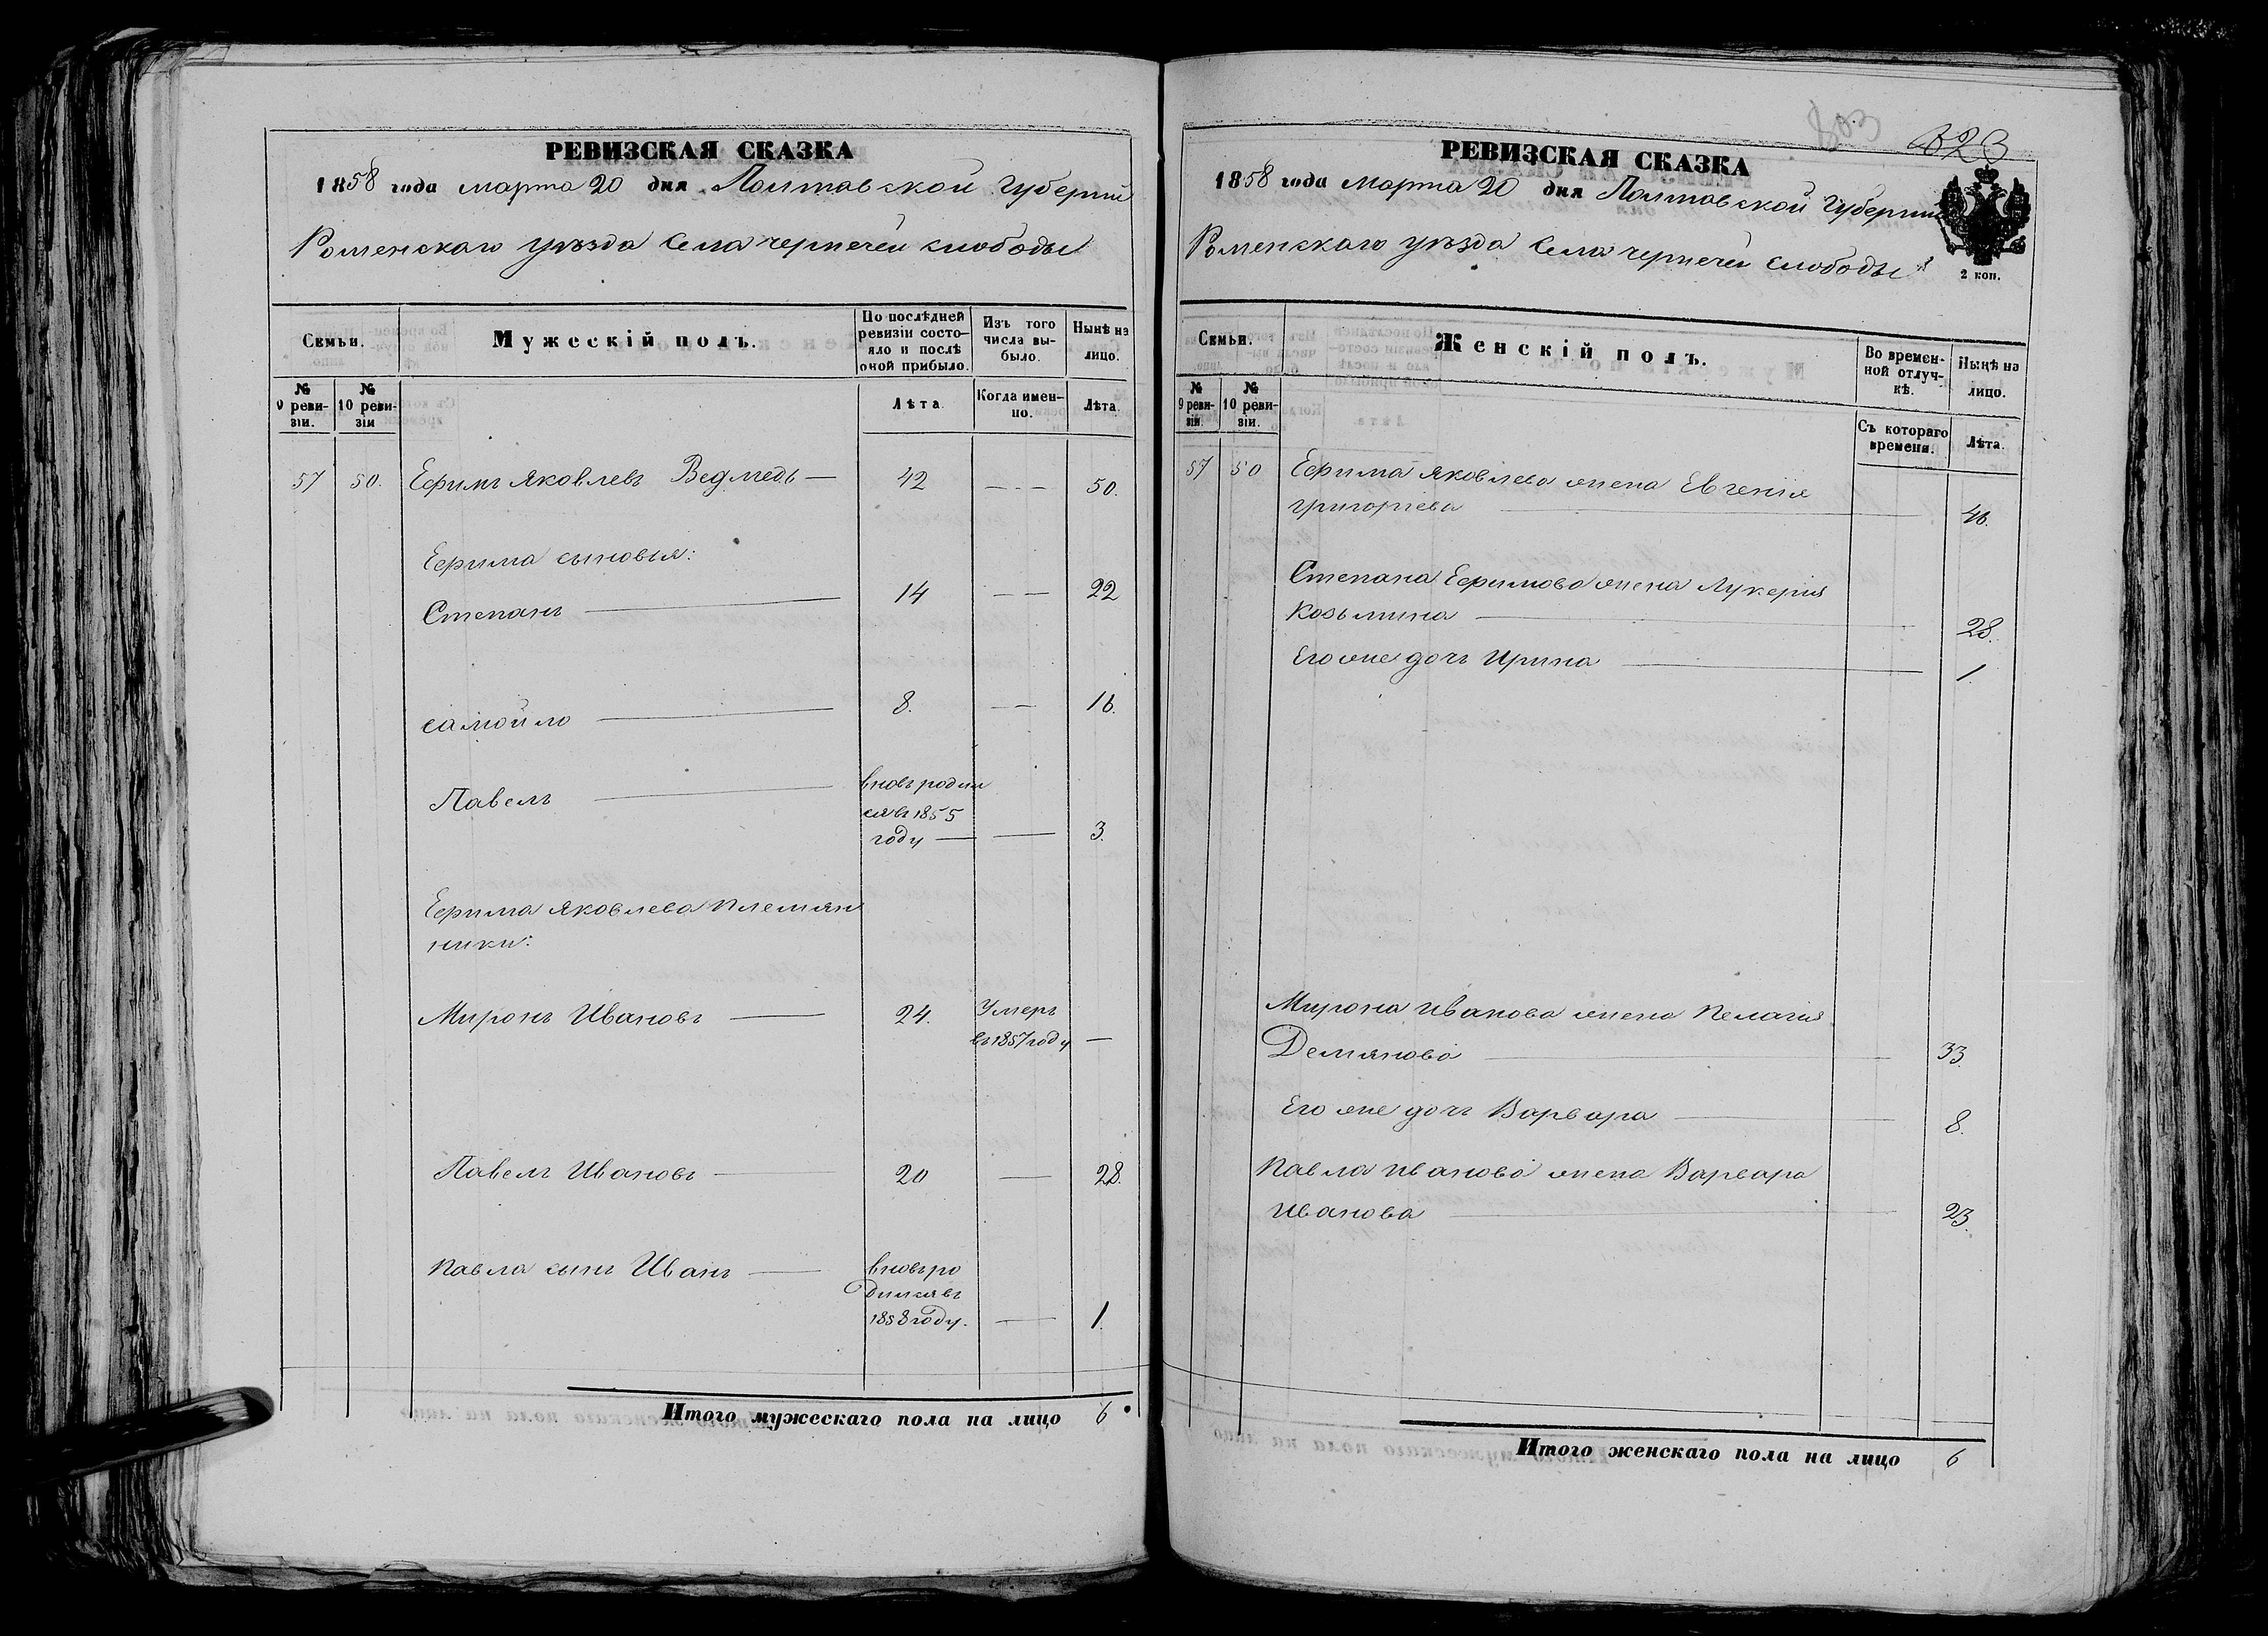 РЕВИЗСКАЯ СКАЗКА
1858 года марта 20 дня Полтавской Губернии
Роменскаго уѣзда Села чернечей слободы
Семьи.
Мужескій полъ.
По послѣдней ревизіи состояло и послѣ оной прибыло.
Изъ того числа выбыло.
Нынѣ на лицо.
№ 9 ревизіи.
№ 10 ревизіи
Лѣта.
Когда именно.
Лѣта.
57 50. Ефимъ Яковлевъ Ведмедь — 42 — - — 50.
Ефима сыновья:
Степанъ — 14 — — 22
Самойло — 8. — — 16.
Павелъ — вновь родил
ся въ 1855
году — — 3.
Ефима Яковлева племян
ники:
Миронъ Ивановъ — 24. Умеръ
въ 1857 году —
Павелъ Ивановъ — 20 — 28.
Павла сынъ Иванъ — вновь ро
дился въ
1858 году. — 1.
Итого мужескаго пола на лицо 6
803
823
РЕВИЗСКАЯ СКАЗКА
1858 года марта 20 дня Полтавской Губернии
Роменскаго уѣзда Села чернечей слободы
2 коп.
Семьи.
Женскій полъ.
Во временной отлучкѣ.
Нынѣ на лицо.
№ 9 ревизіи.
№ 10 ревизіи.
Съ котораго времени.
Лѣта.
57 50 Ефима Яковлева жена Евгенія
григоріева — 46.
Степана Ефимова жена Лукерия
Козьмина — 28.
Его же дочь Ирина — 1.
Мирона Иванова жена Пелагия
Демянова — 33.
Его же дочь Варвара — 8.
Павла Иванова жена Варвара
Иванова — 23.
Итого женскаго пола на лицо 6